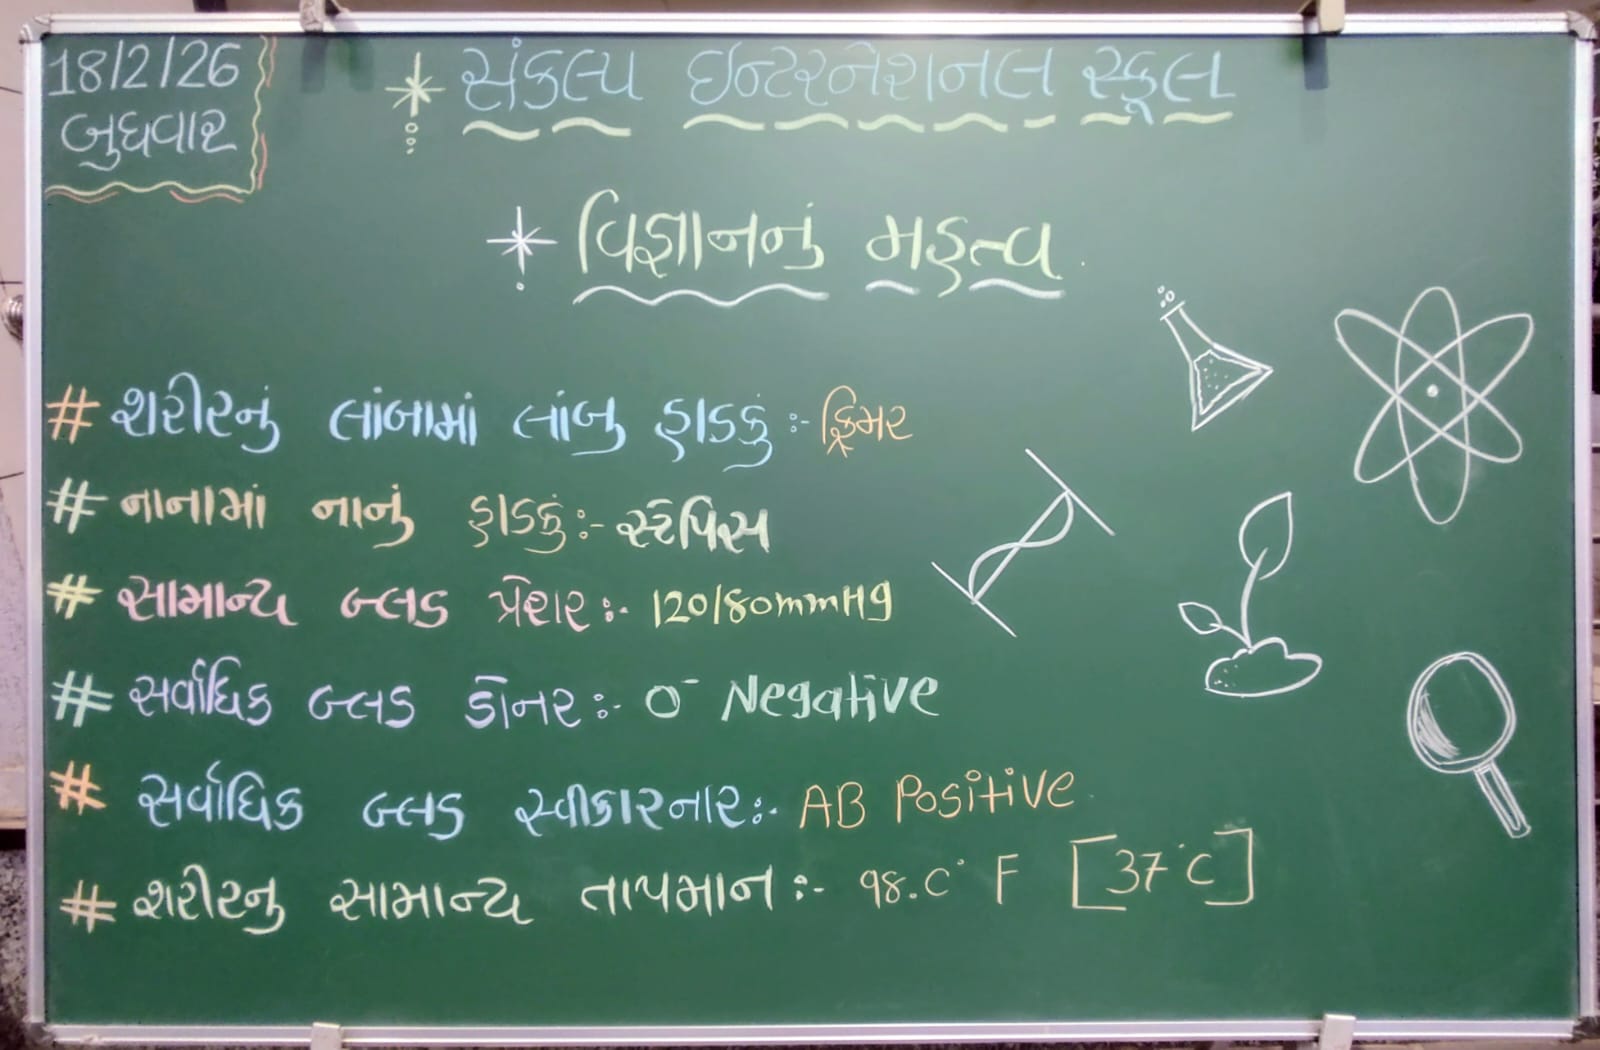 18/2/26
બુધવાર
સંકલ્પ ઇન્ટરનેશનલ સ્કૂલ
વિજ્ઞાનનું મહત્વ.
# શરીરનું લાંબામાં લાંબુ હાડકું :- ફિમર
# નાનામાં નાનું હાડકું :- સ્ટેપિસ
# સામાન્ય બ્લડ પ્રેશર :- 120/80mmHg
# સર્વાધિક બ્લડ ડોનર :- O⁻ Negative
# સર્વાધિક બ્લડ સ્વીકારનાર :- AB Positive
# શરીરનુ સામાન્ય તાપમાન :- 98.C° F [37°C]